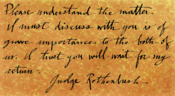 Please understand the matter
I must discuss with you is of
grave importance to the both of
us. I trust you will wait for my
return.
Judge Rothenbush